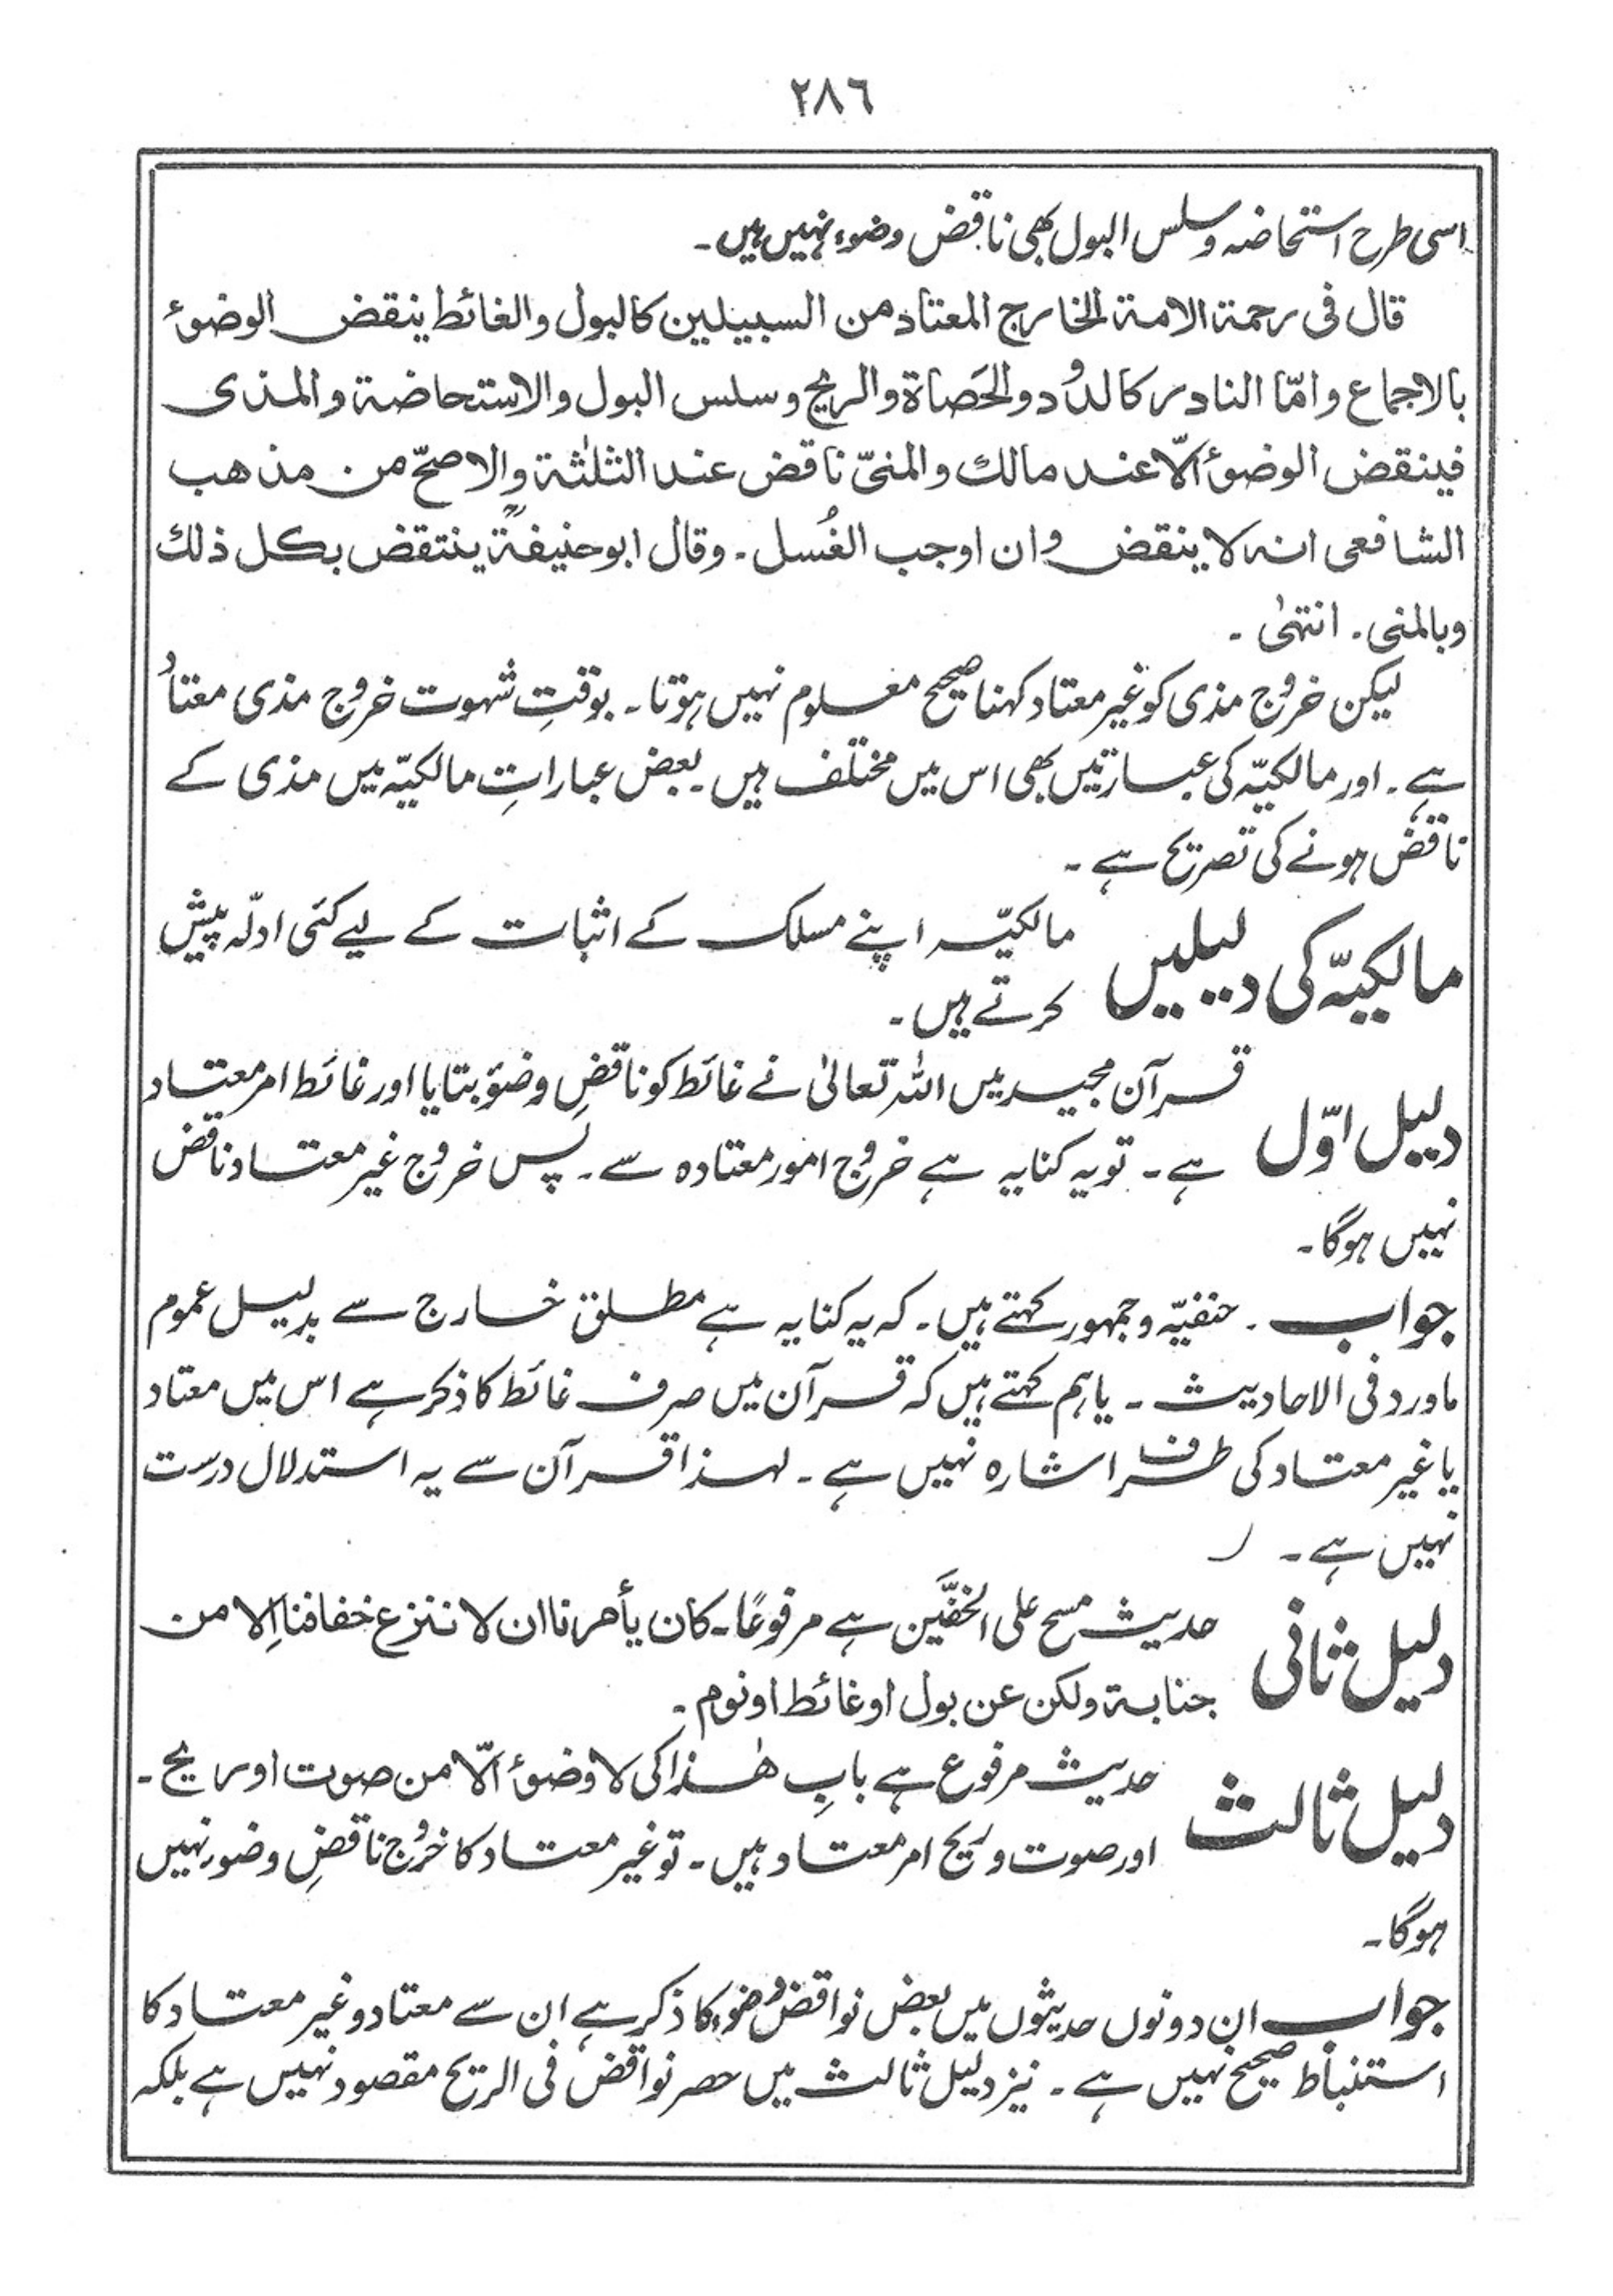 ۲۸٦
اسی طرح استحاضہ و سلس البول بھی ناقض وضوء نہیں ہیں۔
قال فی رحمۃ الامۃ الخارج المعتاد من السبیلین کالبول والغائط ینقض الوضوءُ
بالاجماع وامّا النادر کالدُود والحَصاۃ والریح وسلس البول والاستحاضۃ والمذی
فینقض الوضوءُ الّا عند مالک والمنیّ ناقض عند الثلٰثۃ والاصحّ من مذھب
الشافعی انہ لا ینقض وان اوجب الغُسل۔ وقال ابوحنیفۃؒ ینتقض بکل ذلک
وبالمنی۔ انتہٰی۔
لیکن خروج مذی کو غیر معتاد کہنا صحیح معلوم نہیں ہوتا۔ بوقتِ شہوت خروج مذی معتاد
ہے۔ اور مالکیّہ کی عبارتیں بھی اس میں مختلف ہیں۔ بعض عباراتِ مالکیّہ میں مذی کے
ناقض ہونے کی تصریح ہے۔
مالکیّہ کی دلیلیں مالکیّہ اپنے مسلک کے اثبات کے لیے کئی ادلّہ پیش
کرتے ہیں۔
دلیل اوّل قرآن مجید میں اللہ تعالیٰ نے غائط کو ناقضِ وضوء بتایا اور غائط امر معتاد
ہے۔ تو یہ کنایہ ہے خروج امور معتادہ سے۔ پس خروج غیر معتاد ناقض
نہیں ہوگا۔
جواب۔ حنفیّہ و جمہور کہتے ہیں۔ کہ یہ کنایہ ہے مطلق خارج سے بدلیل عموم
ماورد فی الاحادیث۔ یا ہم کہتے ہیں کہ قرآن میں صرف غائط کا ذکر ہے اس میں معتاد
یا غیر معتاد کی طرف اشارہ نہیں ہے۔ لہذا قرآن سے یہ استدلال درست
نہیں ہے۔
دلیل ثانی حدیث مسح علی الخفَّین ہے مرفوعًا۔ کان یأمرنا ان لا ننزع خفافنا اِلا من
جنابۃ ولکن عن بول او غائط او نوم۔
دلیل ثالث حدیث مرفوع ہے بابِ ھٰذا کی لا وضوءُ الّا من صوت او ریح۔
اور صوت و ریح امر معتاد ہیں۔ تو غیر معتاد کا خروج ناقضِ وضو نہیں
ہوگا۔
جواب ان دونوں حدیثوں میں بعض نواقض وضوء کا ذکر ہے ان سے معتاد و غیر معتاد کا
استنباط صحیح نہیں ہے۔ نیز دلیل ثالث میں حصر نواقض فی الریح مقصود نہیں ہے بلکہ